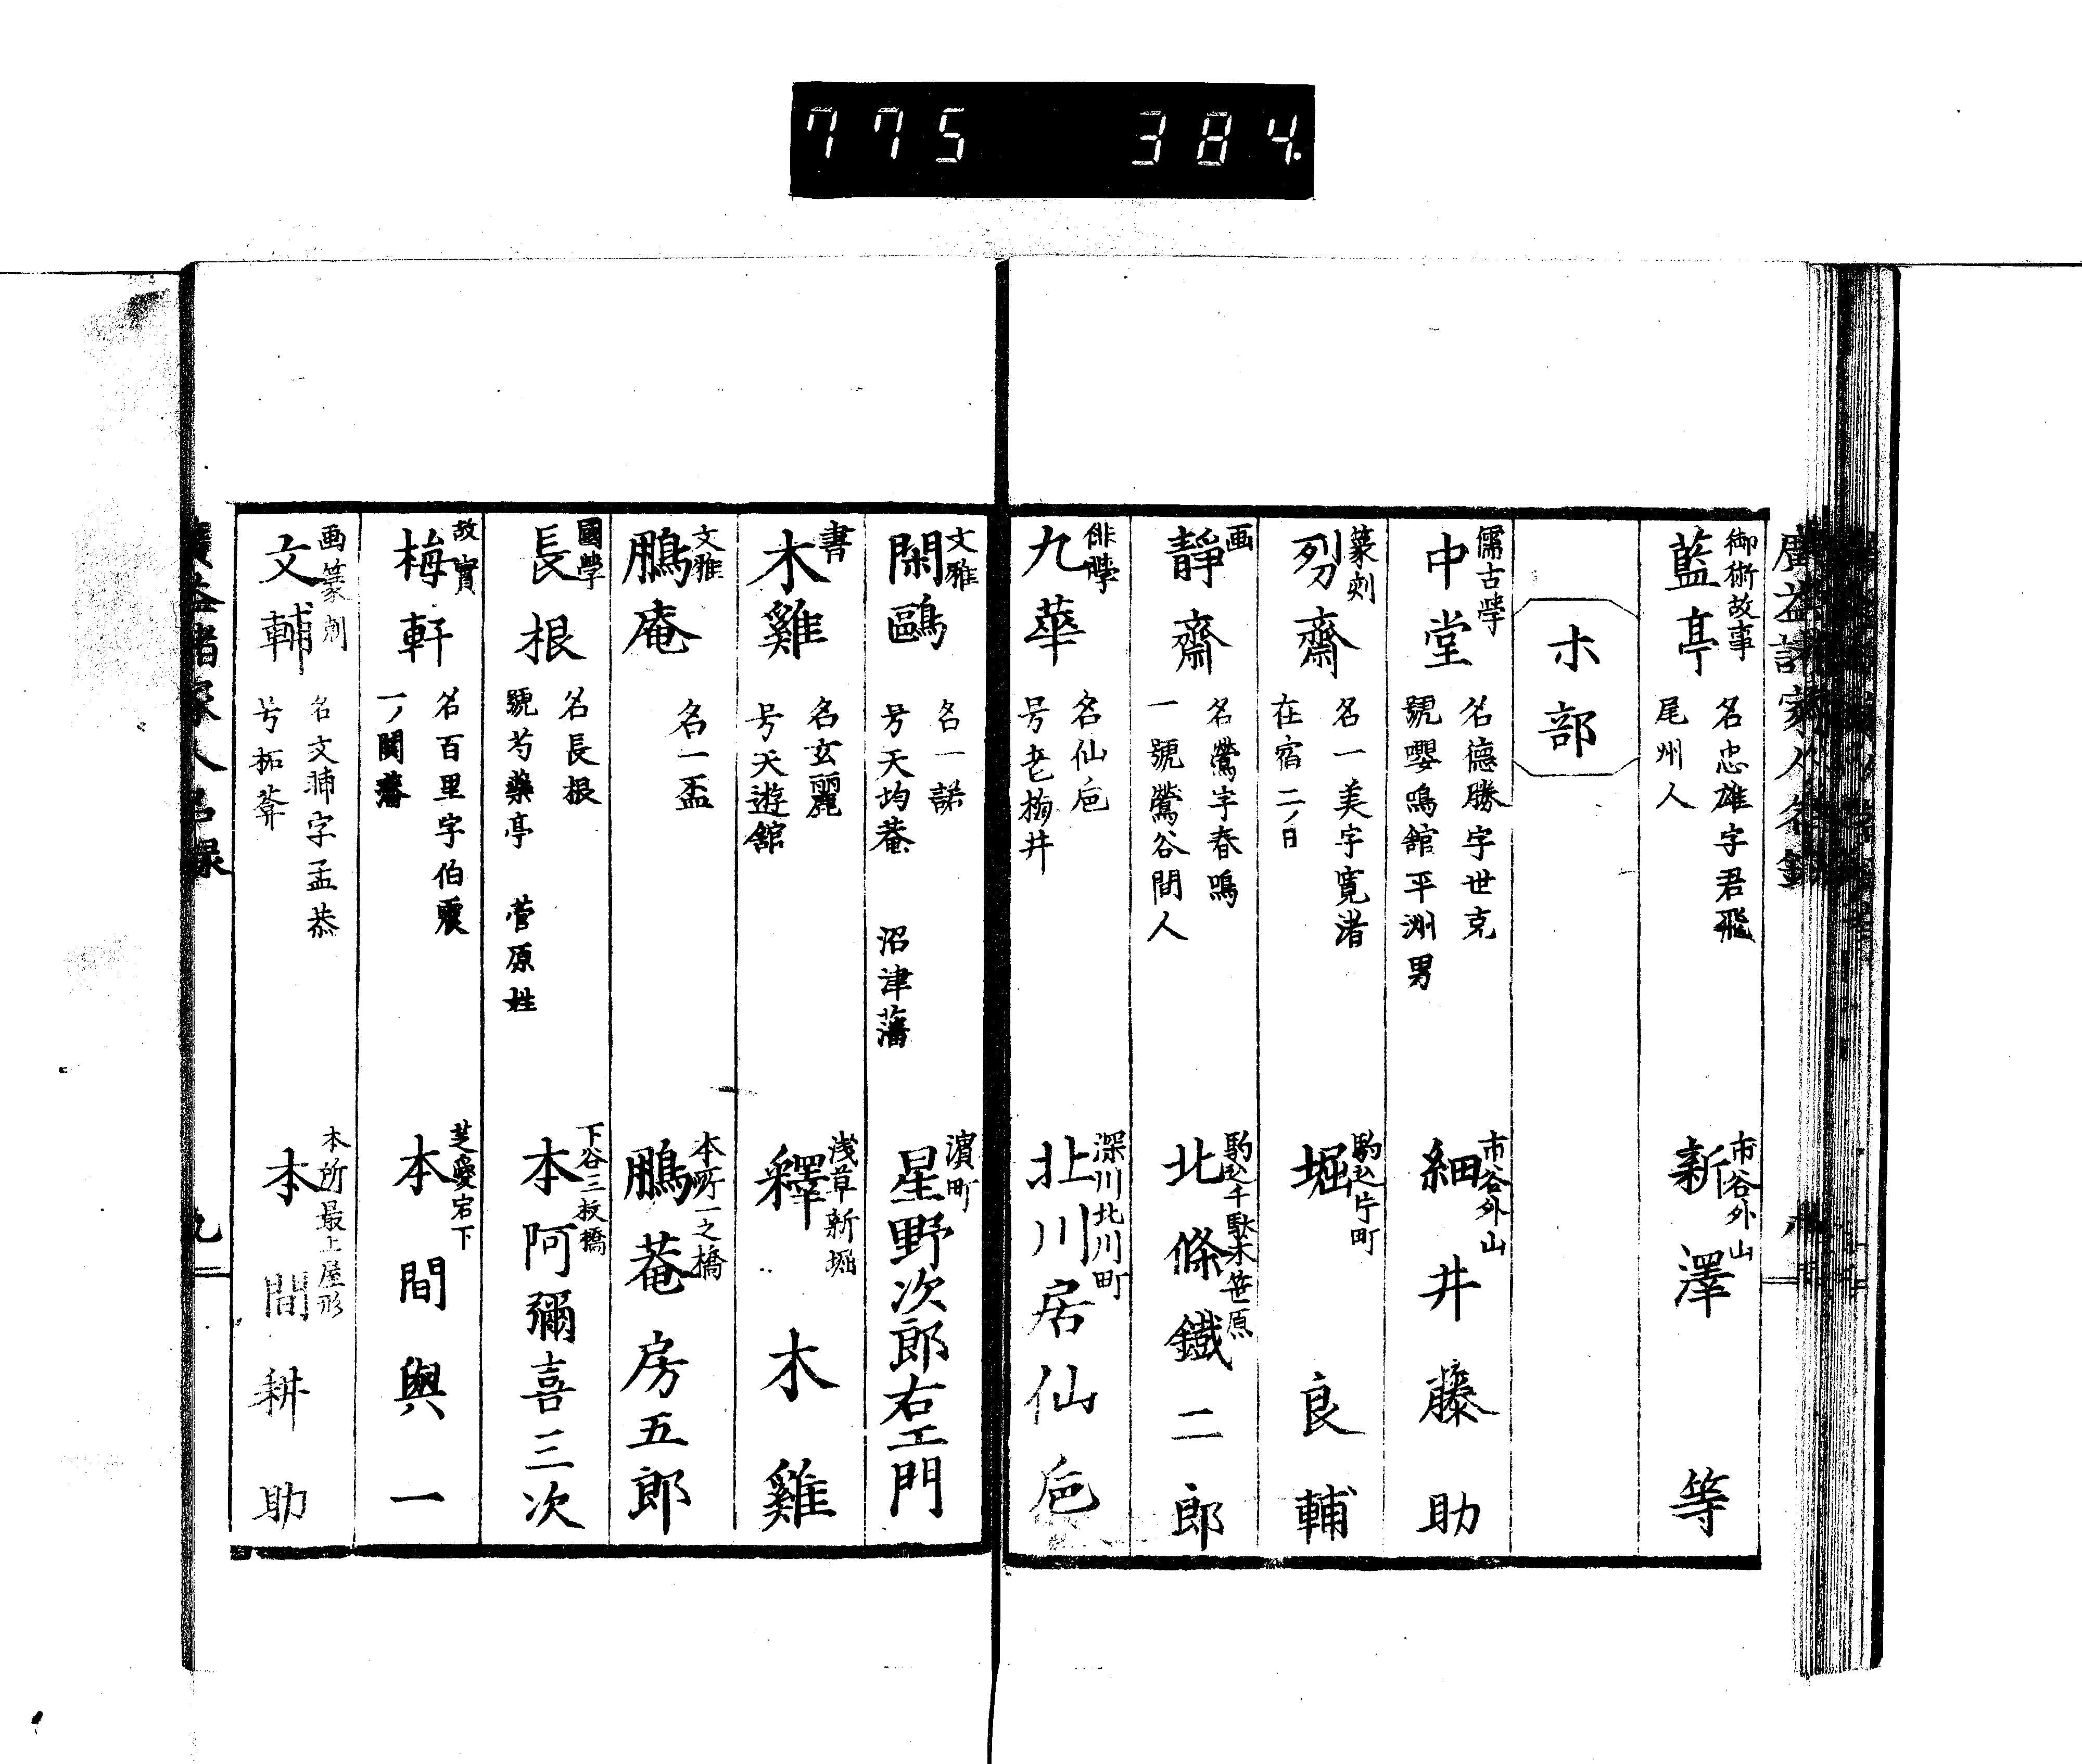 775 384.
廣益諸家人名録
御術故事
藍亭
名忠雄字君飛
尾州人
市谷外山
新澤等
ホ部
儒古學
中堂
名德勝字世克
號嚶鳴館平洲男
市谷外山
細井藤助
篆刻
刕齋
名一美字寛渚
在宿二ノ日
駒込片町
堀良輔
画
靜齋
名鶯字春鳴
一號鶯谷間人
駒込千駄木笹原
北條鐵二郎
俳諧
九華
名仙卮
号老梅井
深川北川町
北川居仙卮
文雅
閑鷗
名一諾
号天均菴
沼津藩
濵町
星野次郎右エ門
書
木雞
名玄麗
号天遊舘
浅草新堀
釋木雞
文雅
鵬庵
名一盃
本所一之橋
鵬菴房五郎
國學
長根
名長根
號芍藥亭 菅原姓
下谷三枚橋
本阿彌喜三次
故實
梅軒
名百里字伯震
一ノ関藩
芝愛宕下
本間與一
画篆刻
文輔
名文浦字孟恭
号拓葊
本所最上屋形
本間耕助
廣益諸家人名録
九